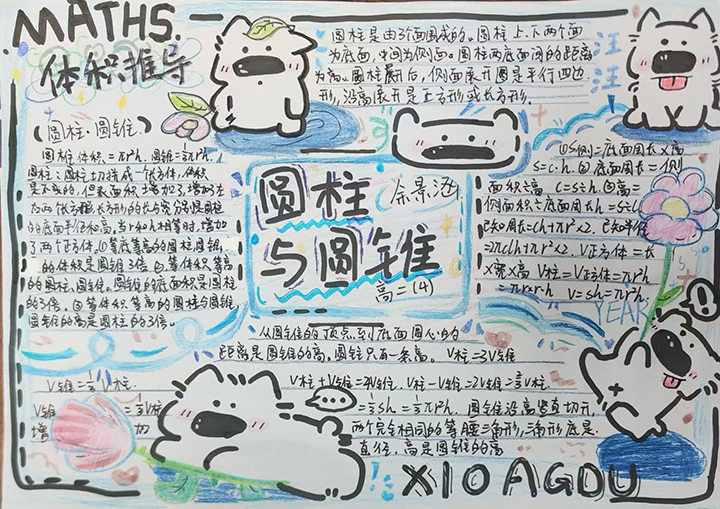 MATHS.
体积推导
(圆柱·圆锥)
圆柱体积=πr²h,圆锥=⅓πr²h,
圆柱:圆柱切拼成一个长方体,体积
是不变的,但表面积增加了,增加左
右两个长方形,长方形的长与宽分别是圆柱
的底面半径和高,当r和h相等时,增加
了两个正方体,①等底等高的圆柱圆锥,
的体积是圆锥3倍.②等体积等高
的圆柱,圆锥,圆锥的底面积是圆柱
的3倍。③等体积等高的圆柱与圆锥
圆锥的高是圆柱的3倍。
圆柱是由3个面围成的。圆柱上、下两个面
为底面,中间为侧面。圆柱两底面间的距离
为高。圆柱展开后,侧面展开图是平行四边
形,沿高展开是正方形或长方形.
汪
汪
①S侧=底面周长×高
S=c·h.②底面周长=侧
面积÷高 C=S÷h ③高=
侧面积÷底面周长h=S÷C
已知周长=ch+πr²×2.已知半径
=2πrh+πr²×2.V正方体=长
×宽×高 V柱=V正方体=πr²h
=πr×r·h V=Sh=πr²h
YEAR
圆柱
与圆锥
余景
高=(4)
从圆锥的顶点到底面圆心的
距离是圆锥的高。圆锥只有一条高. V柱=3V锥
V锥=⅓V柱. V柱+V锥=4V锥.V柱-V锥=2V锥=⅔V柱.
V锥=⅓V柱=⅓Sh=⅓πr²h.圆锥沿高竖直切开,
增 切 两个完全相同的等腰三角形,三角形底是
直径,高是圆锥的高
XIOAGDU